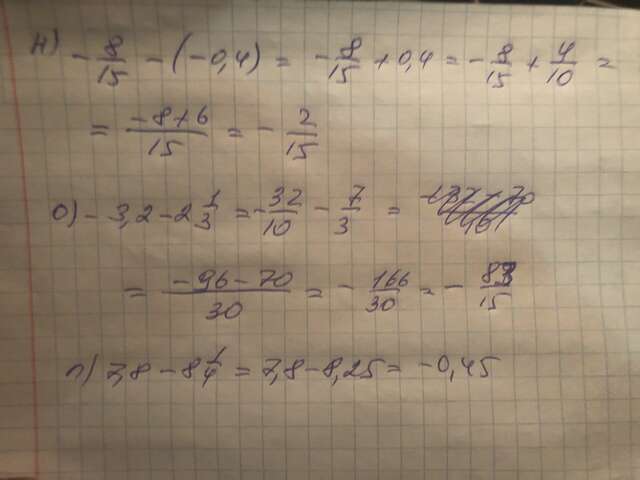 н) -8/15 - (-0,4) = -8/15 + 0,4 = -8/15 + 4/10 =
= (-8+6)/15 = -2/15
о) -3,2 - 2 1/3 = -32/10 - 7/3 =
= (-96-70)/30 = -166/30 = -83/15
п) 7,8 - 8 1/4 = 7,8 - 8,25 = -0,45